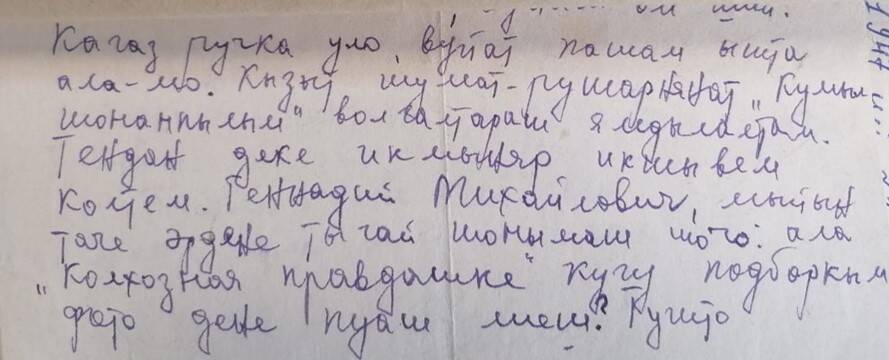 Кагаз ручка уло, вӱйат пашам ышта
ала-мо. Кызыт шумат-рушарнянат „Кумыл
шонанпылым" волгалтараш ямдылалтам.
Тендан деке икмыняр икшывем
колтем. Геннадий Михайлович, мыйын
таче эрдене тыгай шонымаш шочо: ала
„Колхозная правдашке" кугу подборкым
фото дене пуаш лиеш? Кушто